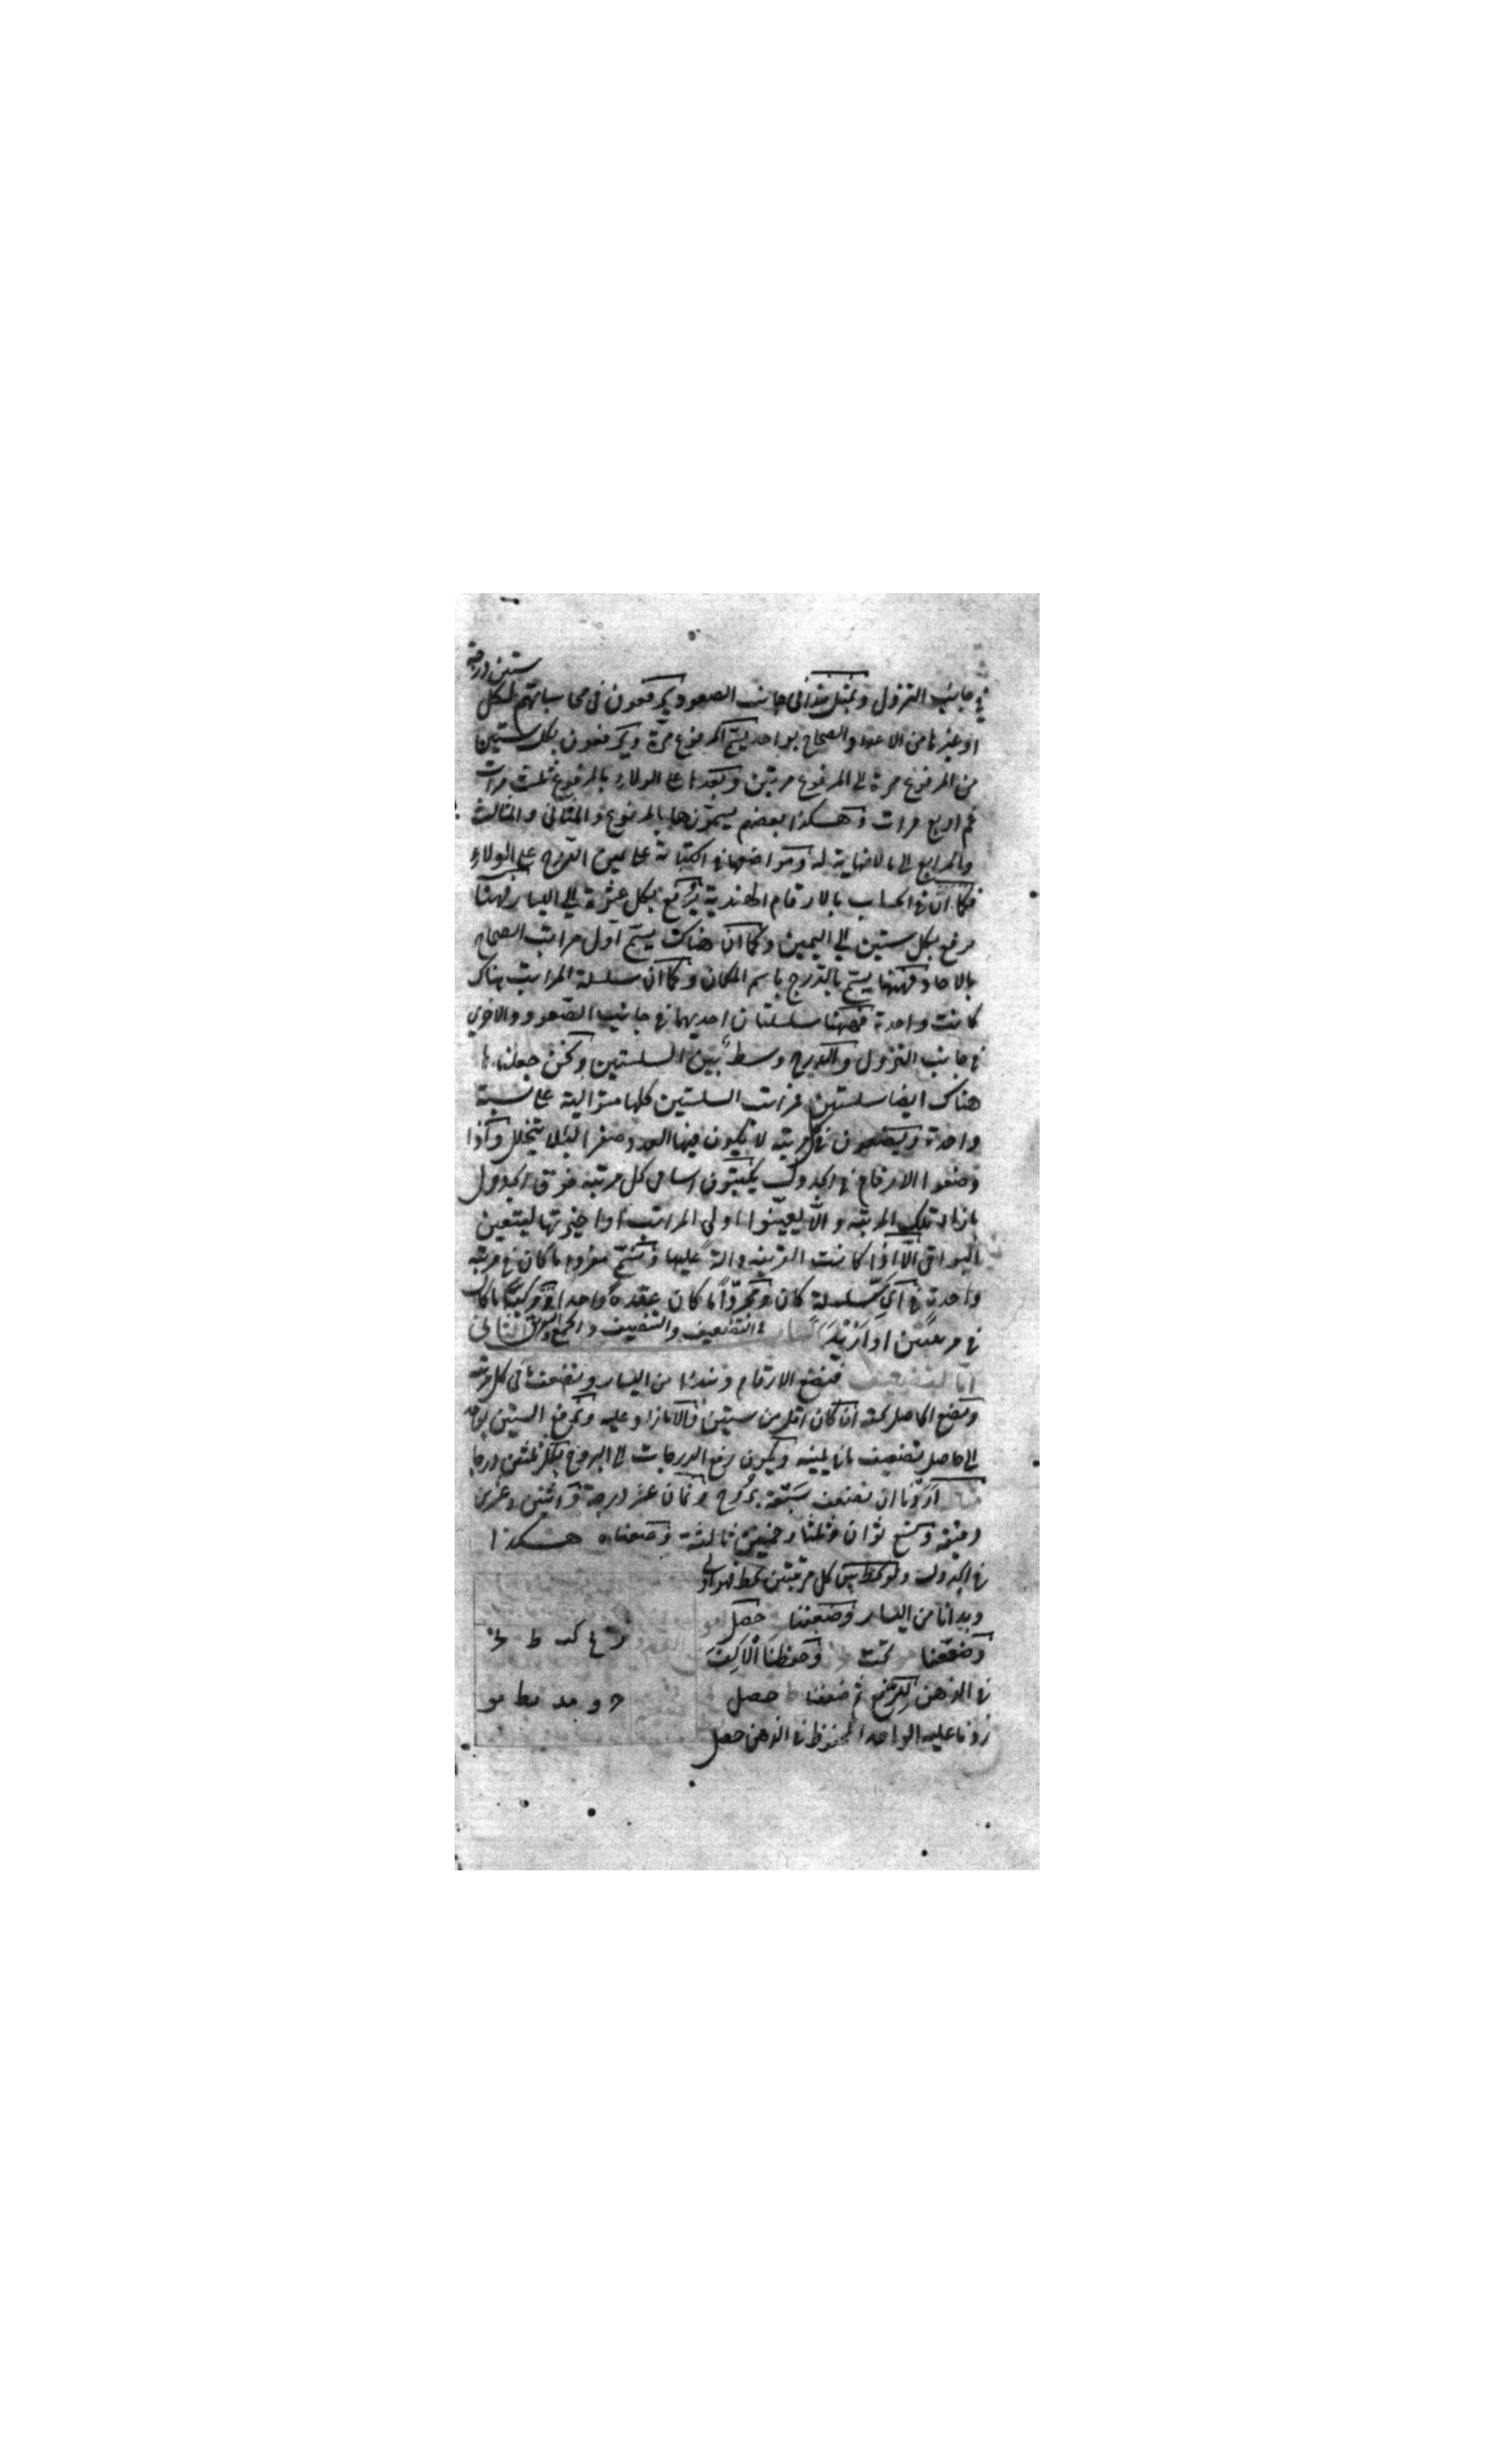 ستين درجة
في جانب النزول وبمثل هذا في جانب الصعود يرفعون في محاسباتهم لكل
او غيرها من الاعداد الصحاح بواحد يسمى المرفوع مرة ويرفعون بكل ستين
من المرفوع مرة الى المرفوع مرتين وبعدها على الولاء بالمرفوع ثلث مرات
ثم اربع مرات وهكذا بعضهم يسمونها بالمرفوع والمثاني والمثالث
والمرابع الى ما لا نهاية له ومواضعها في الكتابة على يمين الدرج على الولاء
فكما ان في الحساب بالارقام الهندية يرفع بكل عشرة الى اليسار فههنا
يرفع بكل ستين الى اليمين وكما ان هناك يسمى اول مراتب الصحاح
بالاحاد فههنا يسمى بالدرج باسم المكان وكما ان سلسلة المراتب هناك
كانت واحدة فههنا سلسلتان احديهما في جانب الصعود والاخرى
في جانب النزول والدرج وسط بين السلستين ونحن جعلناها
هناك ايضا سلستين فمراتب السلستين كلها متوالية على نسبة
واحدة ويضعون في كل مرتبة لا يكون فيها العدد صفرا لئلا يتخلل واذا
وضعوا الارقام في الجدول يكتبون اسامي كل مرتبة فوق الجدول
بازاء تلك المرتبة والا يعينوا اولى المراتب او اخيرتها ليتعين
البواقي الا اذا كانت القرينة دالة عليها ونسمي مفردا ما كان في مرتبة
واحدة في اي سلسلة كان ومجردا ما كان عقده واحدا ومركبا ما كان
في مرتبتين او ازيد الباب الثاني في التضعيف والتنصيف والجمع والتفريق
اما التضعيف فنضع الارقام ونبدا من اليسار ونضعف ما في كل مرتبة
ونضع الحاصل تحته ان كان اقل من ستين والا ما زاد عليه ونرفع الستين بواحد
الى حاصل تضعيف ما في يمينه ويكون رفع الدرجات الى البروج بكل ثلثين درجة
مثاله اردنا ان نضعف سبعة بروج وثمان عشر درجة واثنين وعشرين
دقيقة وتسع ثوان وثلثا وخمسين ثالثة وضعناه هكذا
في الجدول ولو خط بين كل مرتبتين بخط فهو اولى
وبدانا من اليسار وضعفنا حصل
وضعنا تحت وحفظنا
في الذهن للرفع ثم ضعفنا ط حصل
زدنا عليه الواحد المحفوظ في الذهن حصل
ز يح كب ط نج
ب و مد يط مو